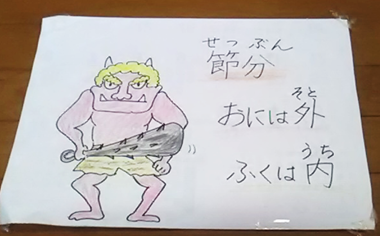 せつぶん
節分
そと
おには外
うち
ふくは内